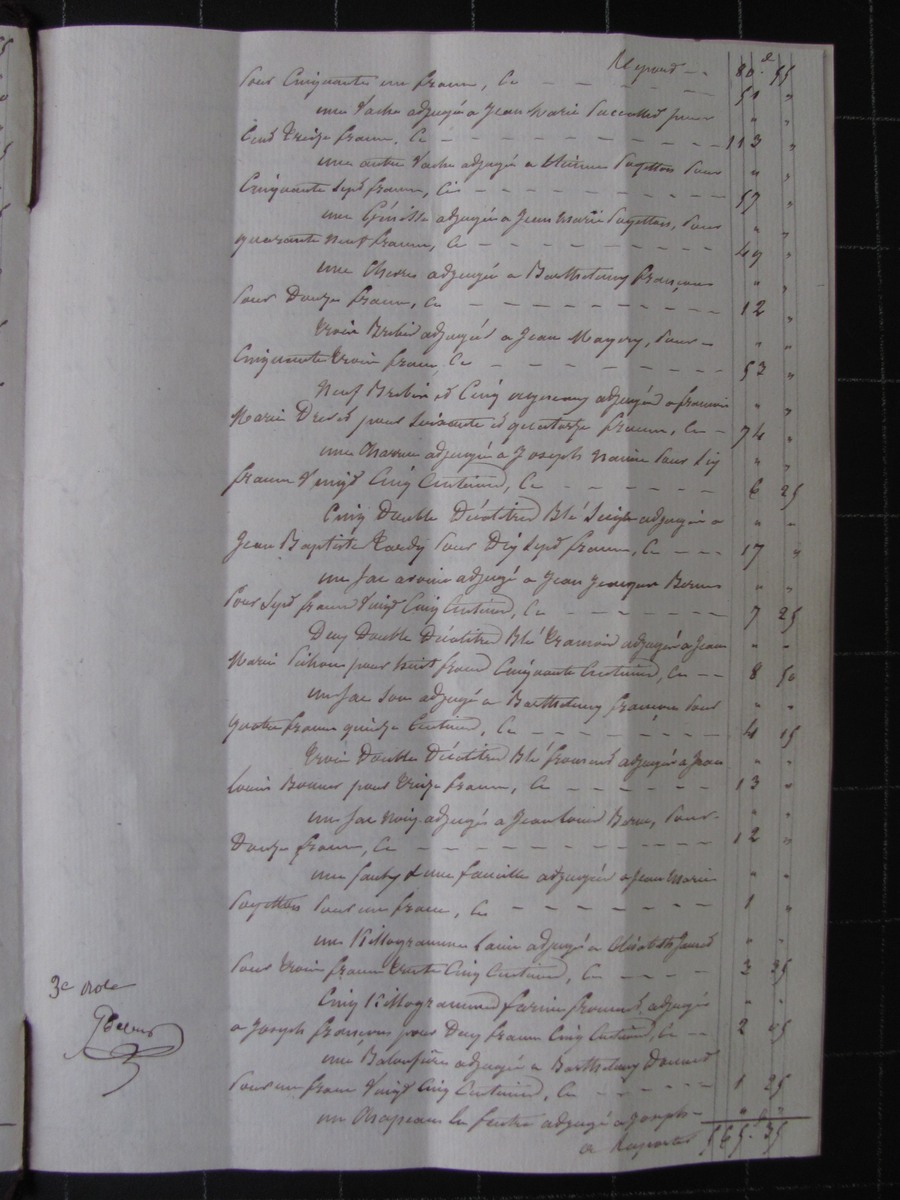 Report -- 80. 55
Pour Cinquante un francs, Ci — — — — — 51 "
une Vache adjugée à Jean Marie pour " "
Cent treize francs, Ci — — — — — 113 "
une autre Vache adjugée a Etienne Payettou pour " "
Cinquante Sept francs, Ci — — — — — 57 "
une Génisse adjugée a Jean Marie Payettou, Pour " "
quarante neuf francs, Ci — — — — — 49 "
une Chevre adjugée a Barthelemy François " "
Pour Douze francs, Ci — — — — — 12 "
trois Brebis adjugées a Jean Magery, Pour — " "
Cinquante trois francs Ci — — — — — 53 "
Neuf Brebis et Cinq agneaux adjugés a francois " "
Marie pour Soixante et quatorze francs, Ci — 74 "
une Charrue adjugée à Joseph pour Six " "
francs Vingt Cinq Centimes, Ci — — — — 6 25
Cinq Double Décalitres Blé Seigle adjugés a " "
Jean Baptiste Tardy Pour Dix Sept francs, Ci — — — 17 "
un Sac avoine adjugé a Jean Jacques " "
Pour Sept francs Vingt Cinq Centimes, Ci — — — — 7 25
Deux Double Décalitres Blé tramois adjugés a Jean " "
Marie Pichon pour huit francs Cinquante Centimes, Ci — — 8 50
un Sac Son adjugé a Barthelemy francois Pour " "
quatre francs quinze Centimes, Ci — — — — — 4 15
trois Double Décalitres Blé froment adjugés a Jean " "
Louis pour treize francs, Ci — — — — — 13 "
un Sac Noix adjugé a Jean Louis Pour — " "
Douze francs, Ci — — — — — 12 "
une faulx & une faucille adjugées a Jean Marie " "
Payettou Pour un franc, Ci — — — — — 1 "
un Killogramme Laine adjugé a Elisabeth " "
Pour trois francs trente Cinq Centimes, Ci — — — — 3 35
Cinq Killogrammes farine froment, adjugés " "
a Joseph francois pour Deux francs Cinq Centimes, Ci — — 2 05
une adjugée a Barthelemy " "
Pour un franc Vingt Cinq Centimes, Ci — — — — 1 25
un Chapeau en feutre adjugé a Joseph — " "
a Reporter 565. 35
3e Role